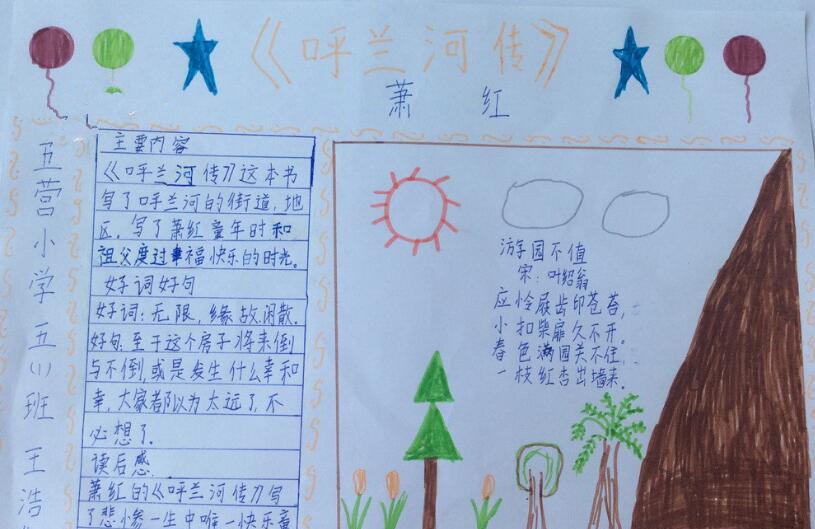 《呼兰河传》
萧 红
五营小学五(1)班 王浩
主要内容
《呼兰河传》这本书
写了呼兰河的街道,地
区,写了萧红童年时和
祖父度过幸福快乐的时光。
好词好句
好词:无限,缘故,闲散.
好句:至于这个房子将来倒
与不倒,或是发生什么幸和
幸,大家都以为太远了,不
必想了.
读后感
萧红的《呼兰河传》写
了悲惨一生中唯一快乐童
游园不值
宋:叶绍翁
应怜屐齿印苍苔,
小扣柴扉久不开。
春色满园关不住,
一枝红杏出墙来.